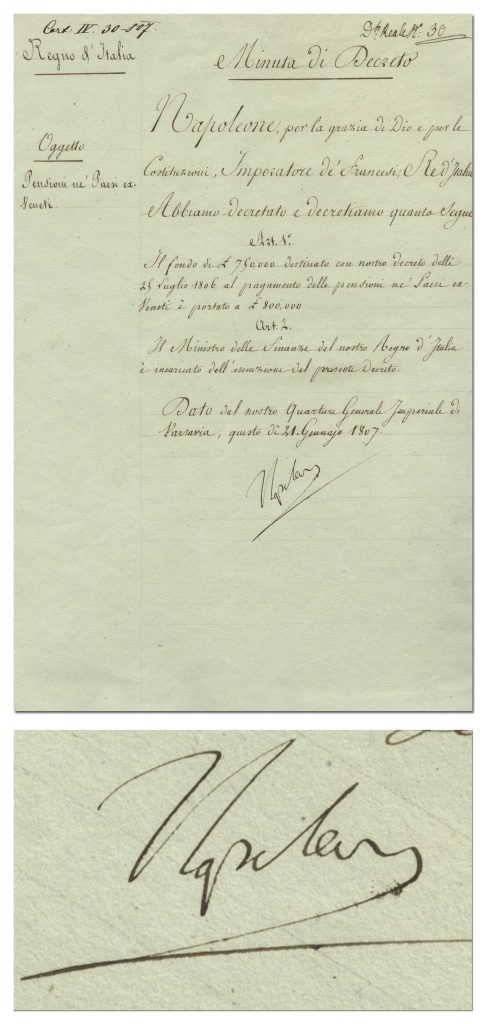 Cart. IV. 30-807.
Dto Reale N. 30
Regno d'Italia
Minuta di Decreto
Oggetto
Pensioni ne' Paesi ex-
Veneti.
Napoleone, per la grazia di Dio e per le
Costituzioni, Imperatore de' Francesi, Re d'Italia
Abbiamo decretato e decretiamo quanto Segue
Art. 1.°
Il fondo di £ 750,000 destinato con nostro decreto delli
25 Luglio 1806 al pagamento delle pensioni ne' Paesi ex-
Veneti è portato a £ 800,000
Art. 2.
Il Ministro delle Finanze del nostro Regno d'Italia
è incaricato dell'esecuzione del presente Decreto.
Dato dal nostro Quartier Generale Imperiale di
Varsavia, questo dì 21. Gennajo 1807.
Napoleon
Napoleon